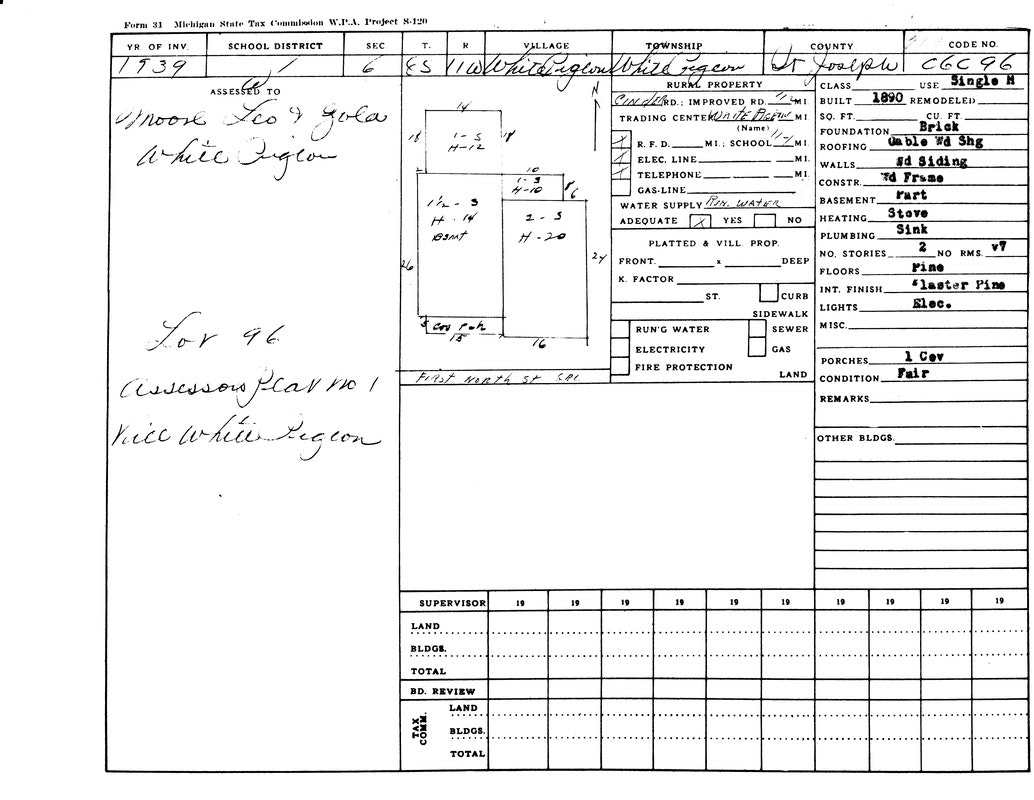 Form 31 Michigan State Tax Commission W.P.A. Project S-120
YR OF INV. SCHOOL DISTRICT SEC T. R VILLAGE TOWNSHIP COUNTY CODE NO.
1939 1 6 8S 11W White Pigeon White Pigeon St Joseph CGC 96
ASSESSED TO
Moore Leo & Gola
White Pigeon
Lot 96
Assessors Plat No 1
Vill White Pigeon
14
18 1-S 18
H-12
2 10
1-S
H-10 8 6
1 1/2 - S
H - 14
Bsmt
2 - S
H - 20
26 24
5 Cov Pch
15 16
N
First North St
RURAL PROPERTY
Cinder RD.; IMPROVED RD. 1/2 MI.
TRADING CENTER White Pigeon MI.
(Name)
X R. F. D. MI.; SCHOOL MI.
X ELEC. LINE MI.
X TELEPHONE MI.
GAS-LINE
WATER SUPPLY Run. Water
ADEQUATE X YES NO
PLATTED & VILL. PROP.
FRONT. x DEEP
K. FACTOR
ST. CURB
SIDEWALK
RUN'G WATER SEWER
ELECTRICITY GAS
FIRE PROTECTION LAND
CLASS USE Single H
BUILT 1890 REMODELED
SQ. FT. CU. FT.
FOUNDATION Brick
ROOFING Gable Wd Shg
WALLS Wd Siding
CONSTR. Wd Frame
BASEMENT Part
HEATING Stove
PLUMBING Sink
NO. STORIES 2 NO RMS. v7
FLOORS Pine
INT. FINISH Plaster Pine
LIGHTS Elec.
MISC.
PORCHES 1 Cov
CONDITION Fair
REMARKS
OTHER BLDGS.
SUPERVISOR 19 19 19 19 19 19 19 19 19 19
LAND
BLDGS.
TOTAL
BD. REVIEW
TAX COMM.
LAND
BLDGS.
TOTAL